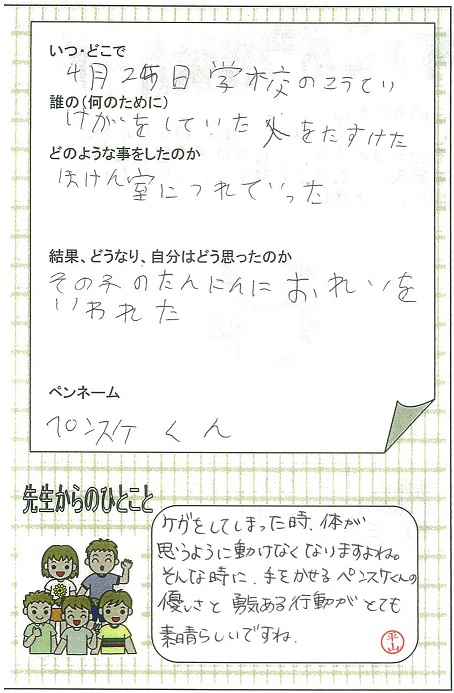 いつ・どこで
4月25日 学校のコラてい
誰の(何のために)
けがをしていた 人をたすけた
どのような事をしたのか
ほけん室につれていった
結果、どうなり、自分はどう思ったのか
その子のたんにんに おれいを
いわれた
ペンネーム
ペンスケ くん
先生からのひとこと
ケガをしてしまった時、体が
思うように動けなくなりますよね。
そんな時に、手をかせるペンスケくんの
優しさと勇気ある行動がとても
素晴らしいですね。
平山